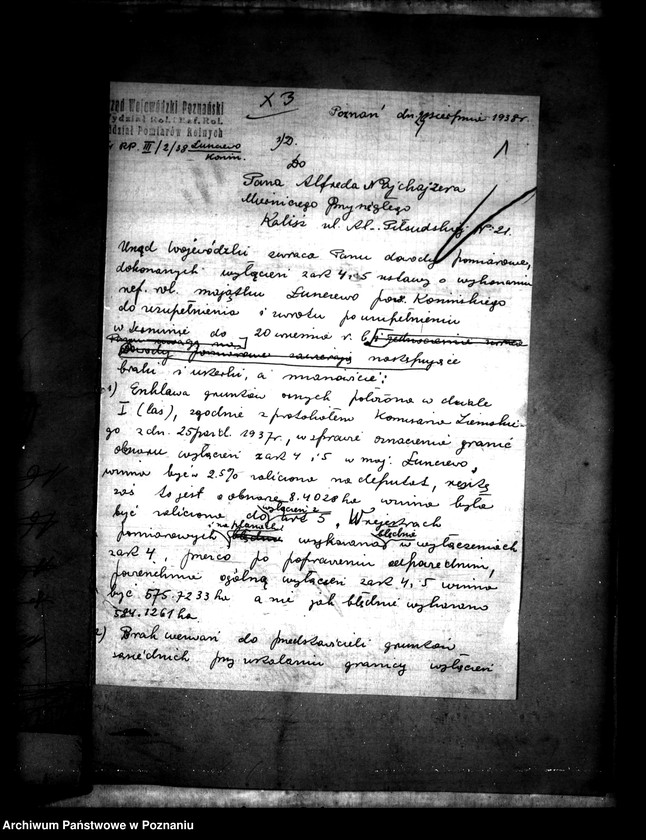 rząd Wojewódzki Poznański
Wydział Rol. i Ref. Rol.
ddział Pomiarów Rolnych
RP. III/2/38 Lunewo
Konin.
X 3
Poznań dn. sierpnia 1938 r.
Do
Pana Alfreda
Mierniczego Przysięgłego
Kalisz ul. Al. Piłsudskiej Nr 21.
Urząd Wojewódzki zwraca Panu dowody pomiarowe,
dokonanych wyłączeń z art 4 i 5 ustawy o wykonaniu
ref. rol. majątku Lunewo pow. Konińskiego
do uzupełnienia i zwrotu po uzupełnieniu
w terminie do 20 września r. b.
dowody pomiarowe zawierają następujące
braki i usterki, a mianowicie:
1) Enklawa gruntów ornych położona w dziale
I (las), zgodnie z protokołem Komisarza Ziemskie-
go z dn. 25 paźdź. 1937 r., w sprawie oznaczenia granic
obszaru wyłączeń z art 4 i 5 w maj. Lunewo,
winna być w 2.5% zaliczona na deputat, reszta
zaś to jest o obszarze 8.4028 ha winna była
być zaliczona do wyłączeń z art 5. W rejestrach
pomiarowych i na planach wykazana błędnie w wyłączeniach
z art 4, przeto po poprawieniu odpowiednim,
powierzchnia ogólną wyłączeń z art 4 i 5 winna
być 575.7233 ha a nie jak błędnie wykazano
584.1261 ha.
2) Brak wezwań do przedstawicieli gruntów
sąsiednich przy ustalaniu granicy wyłączeń
Archiwum Państwowe w Poznaniu